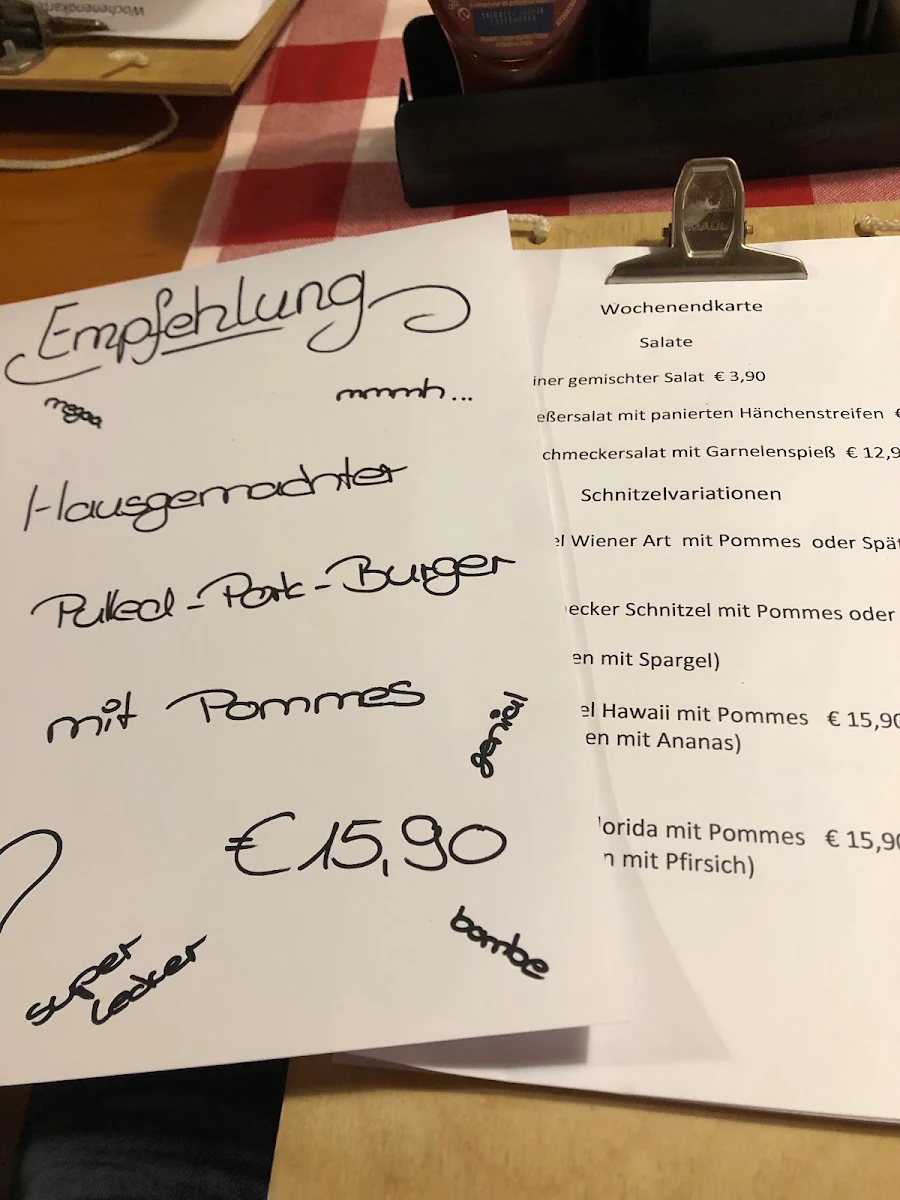 Empfehlung
mega
mmmh...
Hausgemachter
Pulled-Pork-Burger
mit Pommes
genial
€15,90
super
lecker
bombe
MAUL
Wochenendkarte
Salate
iner gemischter Salat € 3,90
eßersalat mit panierten Hänchenstreifen €
chmeckersalat mit Garnelenspieß € 12,9
Schnitzelvariationen
el Wiener Art mit Pommes oder Spät
ecker Schnitzel mit Pommes oder
en mit Spargel)
el Hawaii mit Pommes € 15,90
en mit Ananas)
lorida mit Pommes € 15,90
n mit Pfirsich)
Wochenendkarte